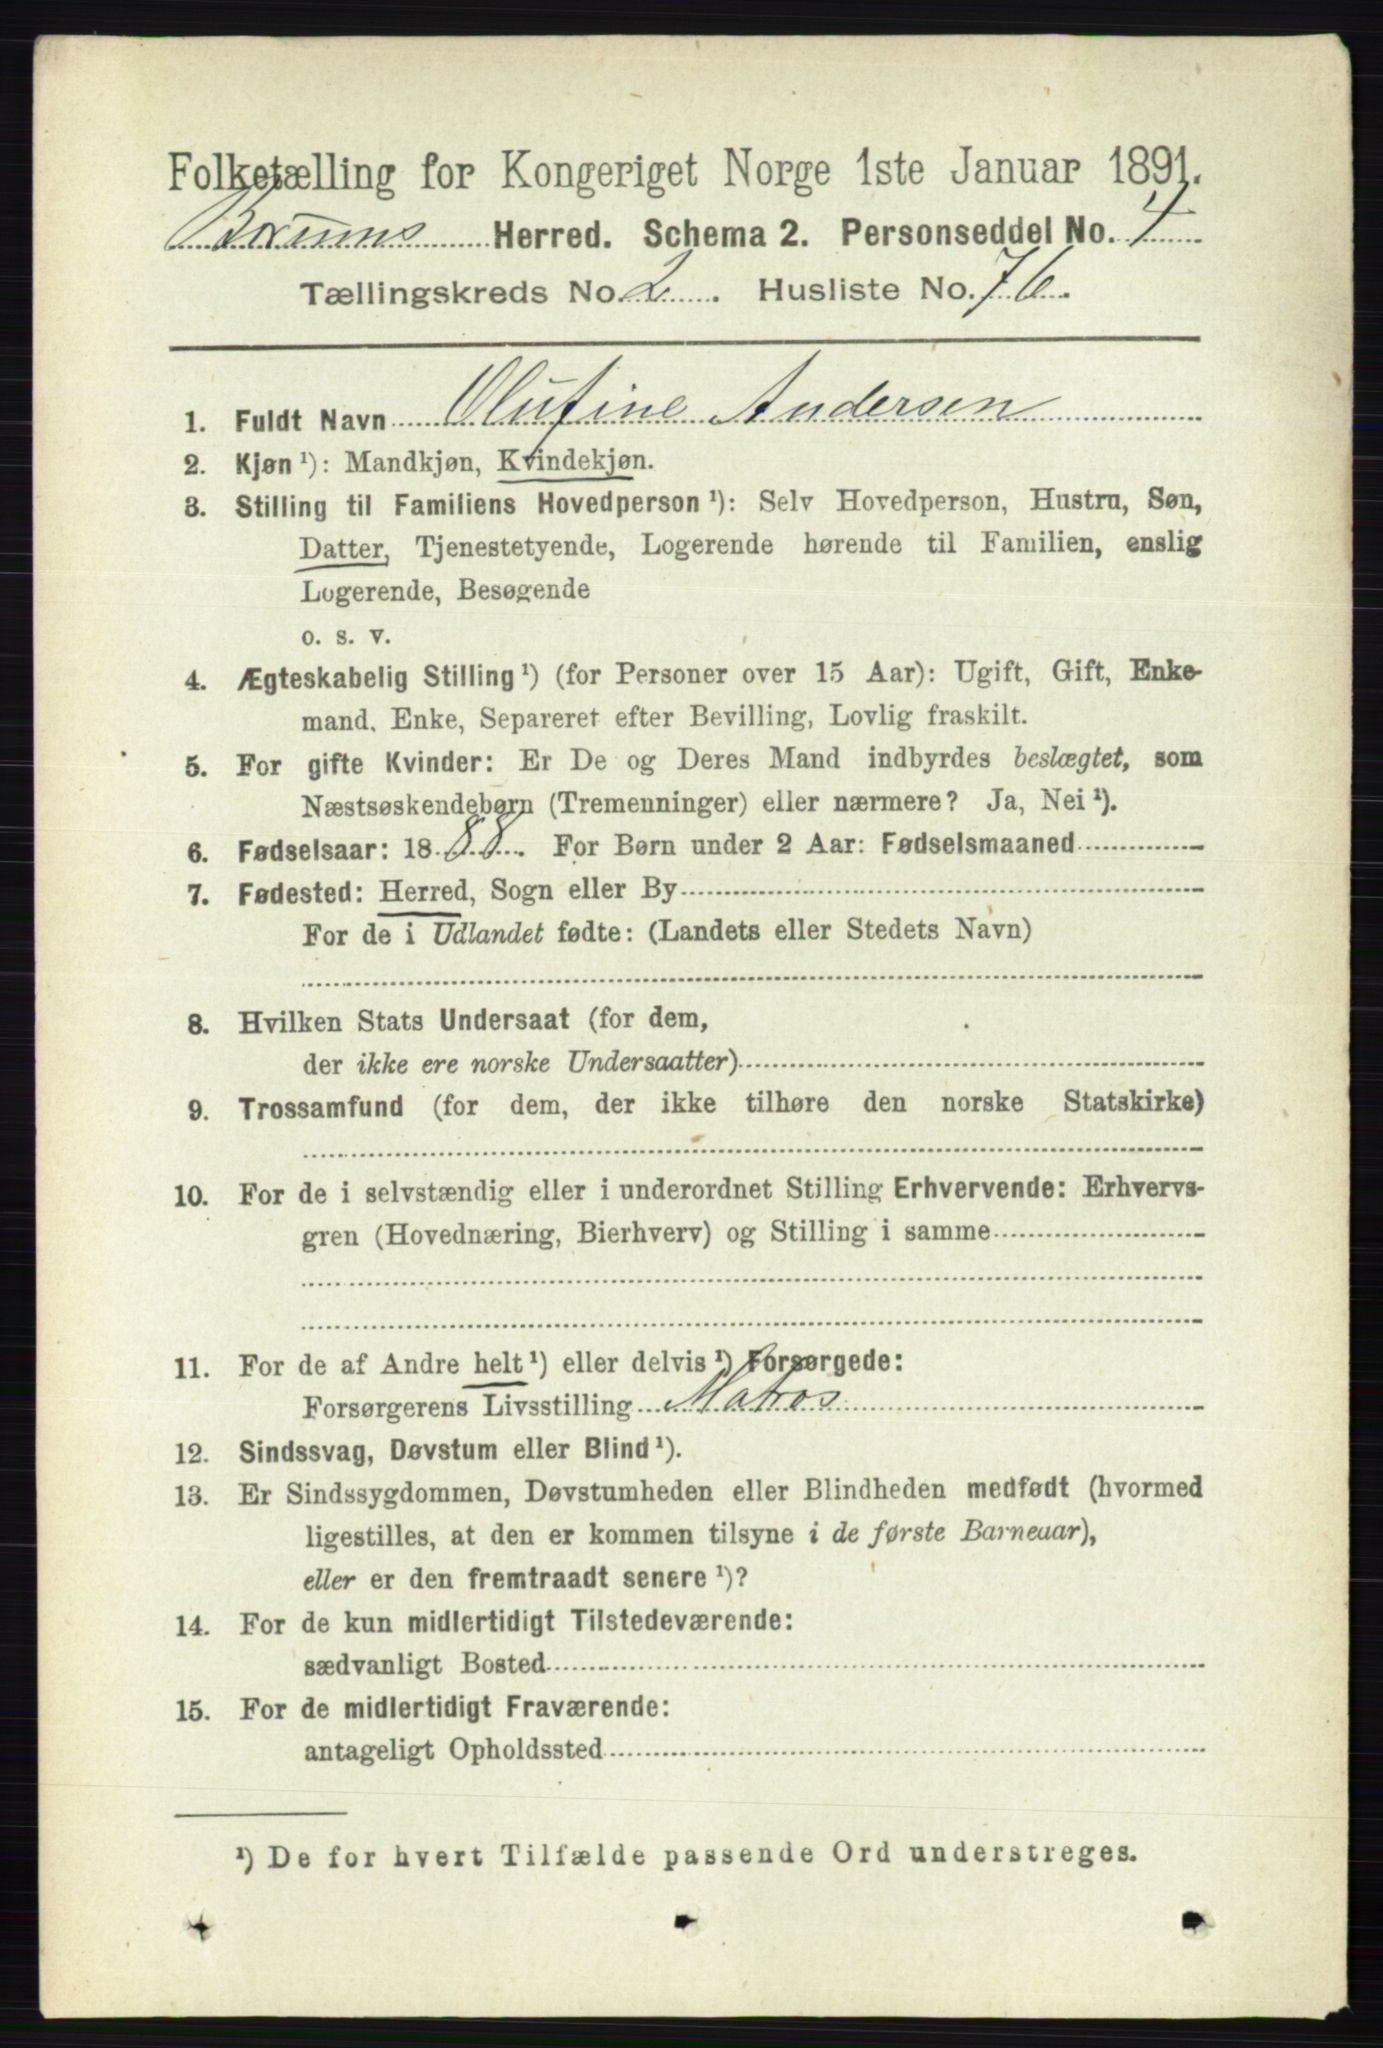 Folketælling for Kongeriget Norge 1ste Januar 1891.
Herred. Schema 2. Personseddel No. 4
Tællingskreds No. 2. Husliste No. 76.
1. Fuldt Navn Olufine Andersen
2. Kjøn ¹): Mandkjøn, Kvindekjøn.
3. Stilling til Familiens Hovedperson ¹): Selv Hovedperson, Hustru, Søn,
Datter, Tjenestetyende, Logerende hørende til Familien, enslig
Logerende, Besøgende
o. s. v.
4. Ægteskabelig Stilling ¹) (for Personer over 15 Aar): Ugift, Gift, Enke-
mand, Enke, Separeret efter Bevilling, Lovlig fraskilt.
5. For gifte Kvinder: Er De og Deres Mand indbyrdes beslægtet, som
Næstsøskendebørn (Tremenninger) eller nærmere? Ja, Nei ¹).
6. Fødselsaar: 1888. For Børn under 2 Aar: Fødselsmaaned
7. Fødested: Herred, Sogn eller By
For de i Udlandet fødte: (Landets eller Stedets Navn)
8. Hvilken Stats Undersaat (for dem,
der ikke ere norske Undersaatter)
9. Trossamfund (for dem, der ikke tilhøre den norske Statskirke)
10. For de i selvstændig eller i underordnet Stilling Erhvervende: Erhvervs-
gren (Hovednæring, Bierhverv) og Stilling i samme
11. For de af Andre helt ¹) eller delvis ¹) Forsørgede:
Forsørgerens Livsstilling Matros
12. Sindssvag, Døvstum eller Blind ¹).
13. Er Sindssygdommen, Døvstumheden eller Blindheden medfødt (hvormed
ligestilles, at den er kommen tilsyne i de første Barneaar),
eller er den fremtraadt senere ¹)?
14. For de kun midlertidigt Tilstedeværende:
sædvanligt Bosted
15. For de midlertidigt Fraværende:
antageligt Opholdssted
¹) De for hvert Tilfælde passende Ord understreges.